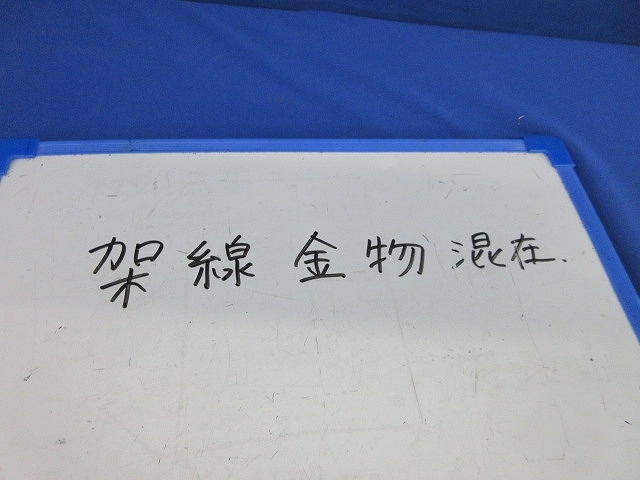 架線金物混在.